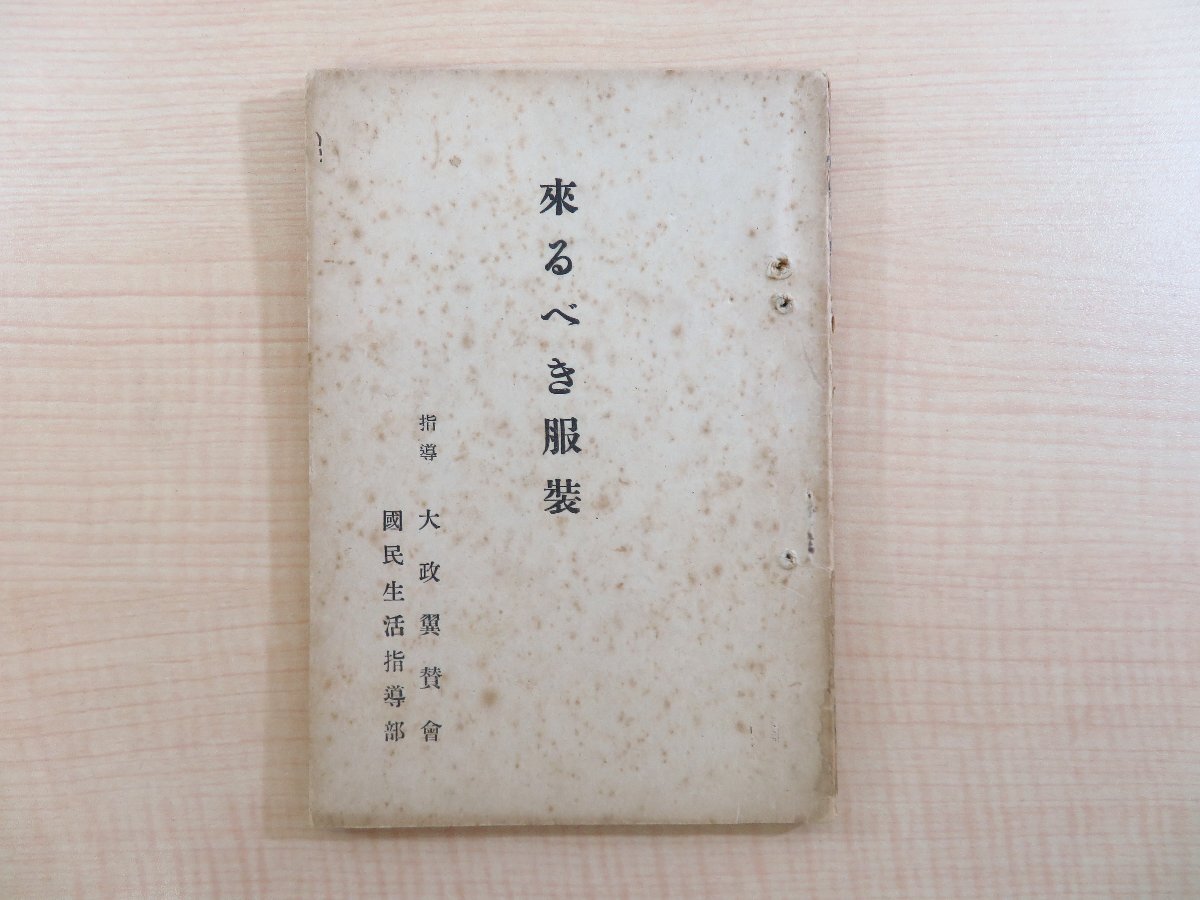 來るべき服裝
指導 大政翼賛會
國民生活指導部